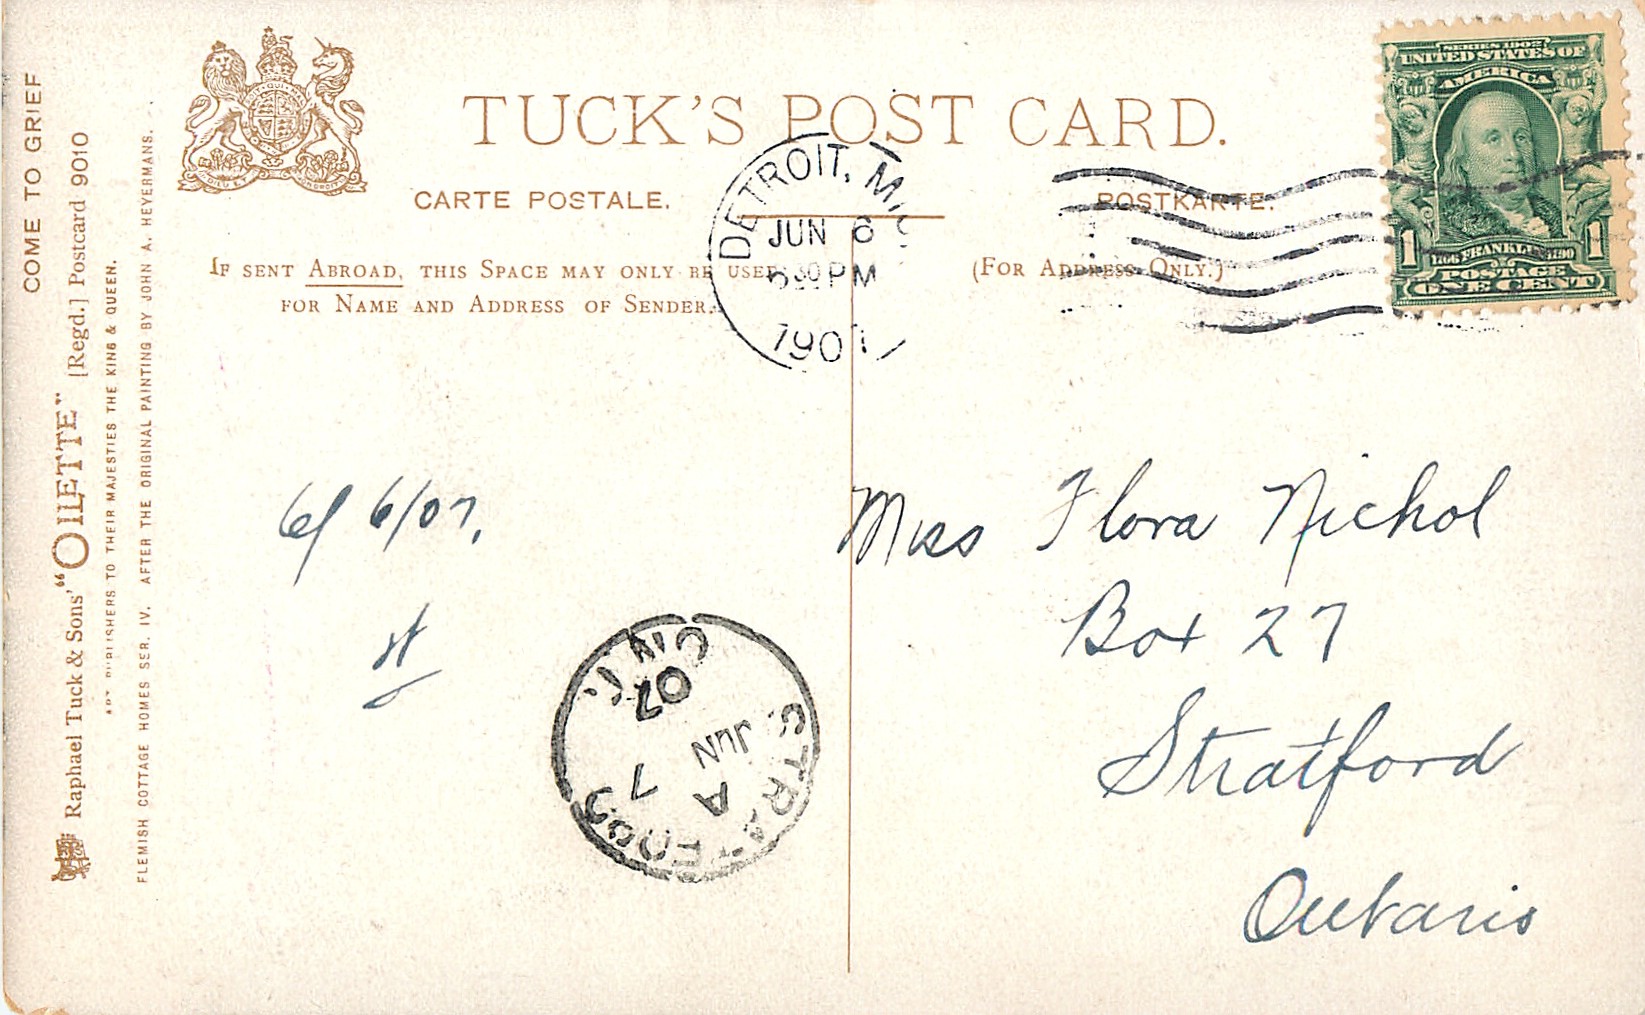 COME TO GRIEF
Raphael Tuck & Sons' "OILETTE" [Regd.] Postcard 9010
ART PUBLISHERS TO THEIR MAJESTIES THE KING & QUEEN.
FLEMISH COTTAGE HOMES SER. IV. AFTER THE ORIGINAL PAINTING BY JOHN A. HEYERMANS.
TUCK'S POST CARD.
CARTE POSTALE.
POSTKARTE.
IF SENT ABROAD, THIS SPACE MAY ONLY BE USED
FOR NAME AND ADDRESS OF SENDER.
(FOR ADDRESS ONLY.)
DETROIT, MICH.
JUN 6
6 30 PM
1907
SERIES 1902
UNITED STATES OF
AMERICA
1706 FRANKLIN 1790
1 1
POSTAGE
ONE CENT
6/6/07.
Miss Flora Nichol
Box 27
Stratford
Ontario
STRATFORD
A
JUN 7
07
ONT.